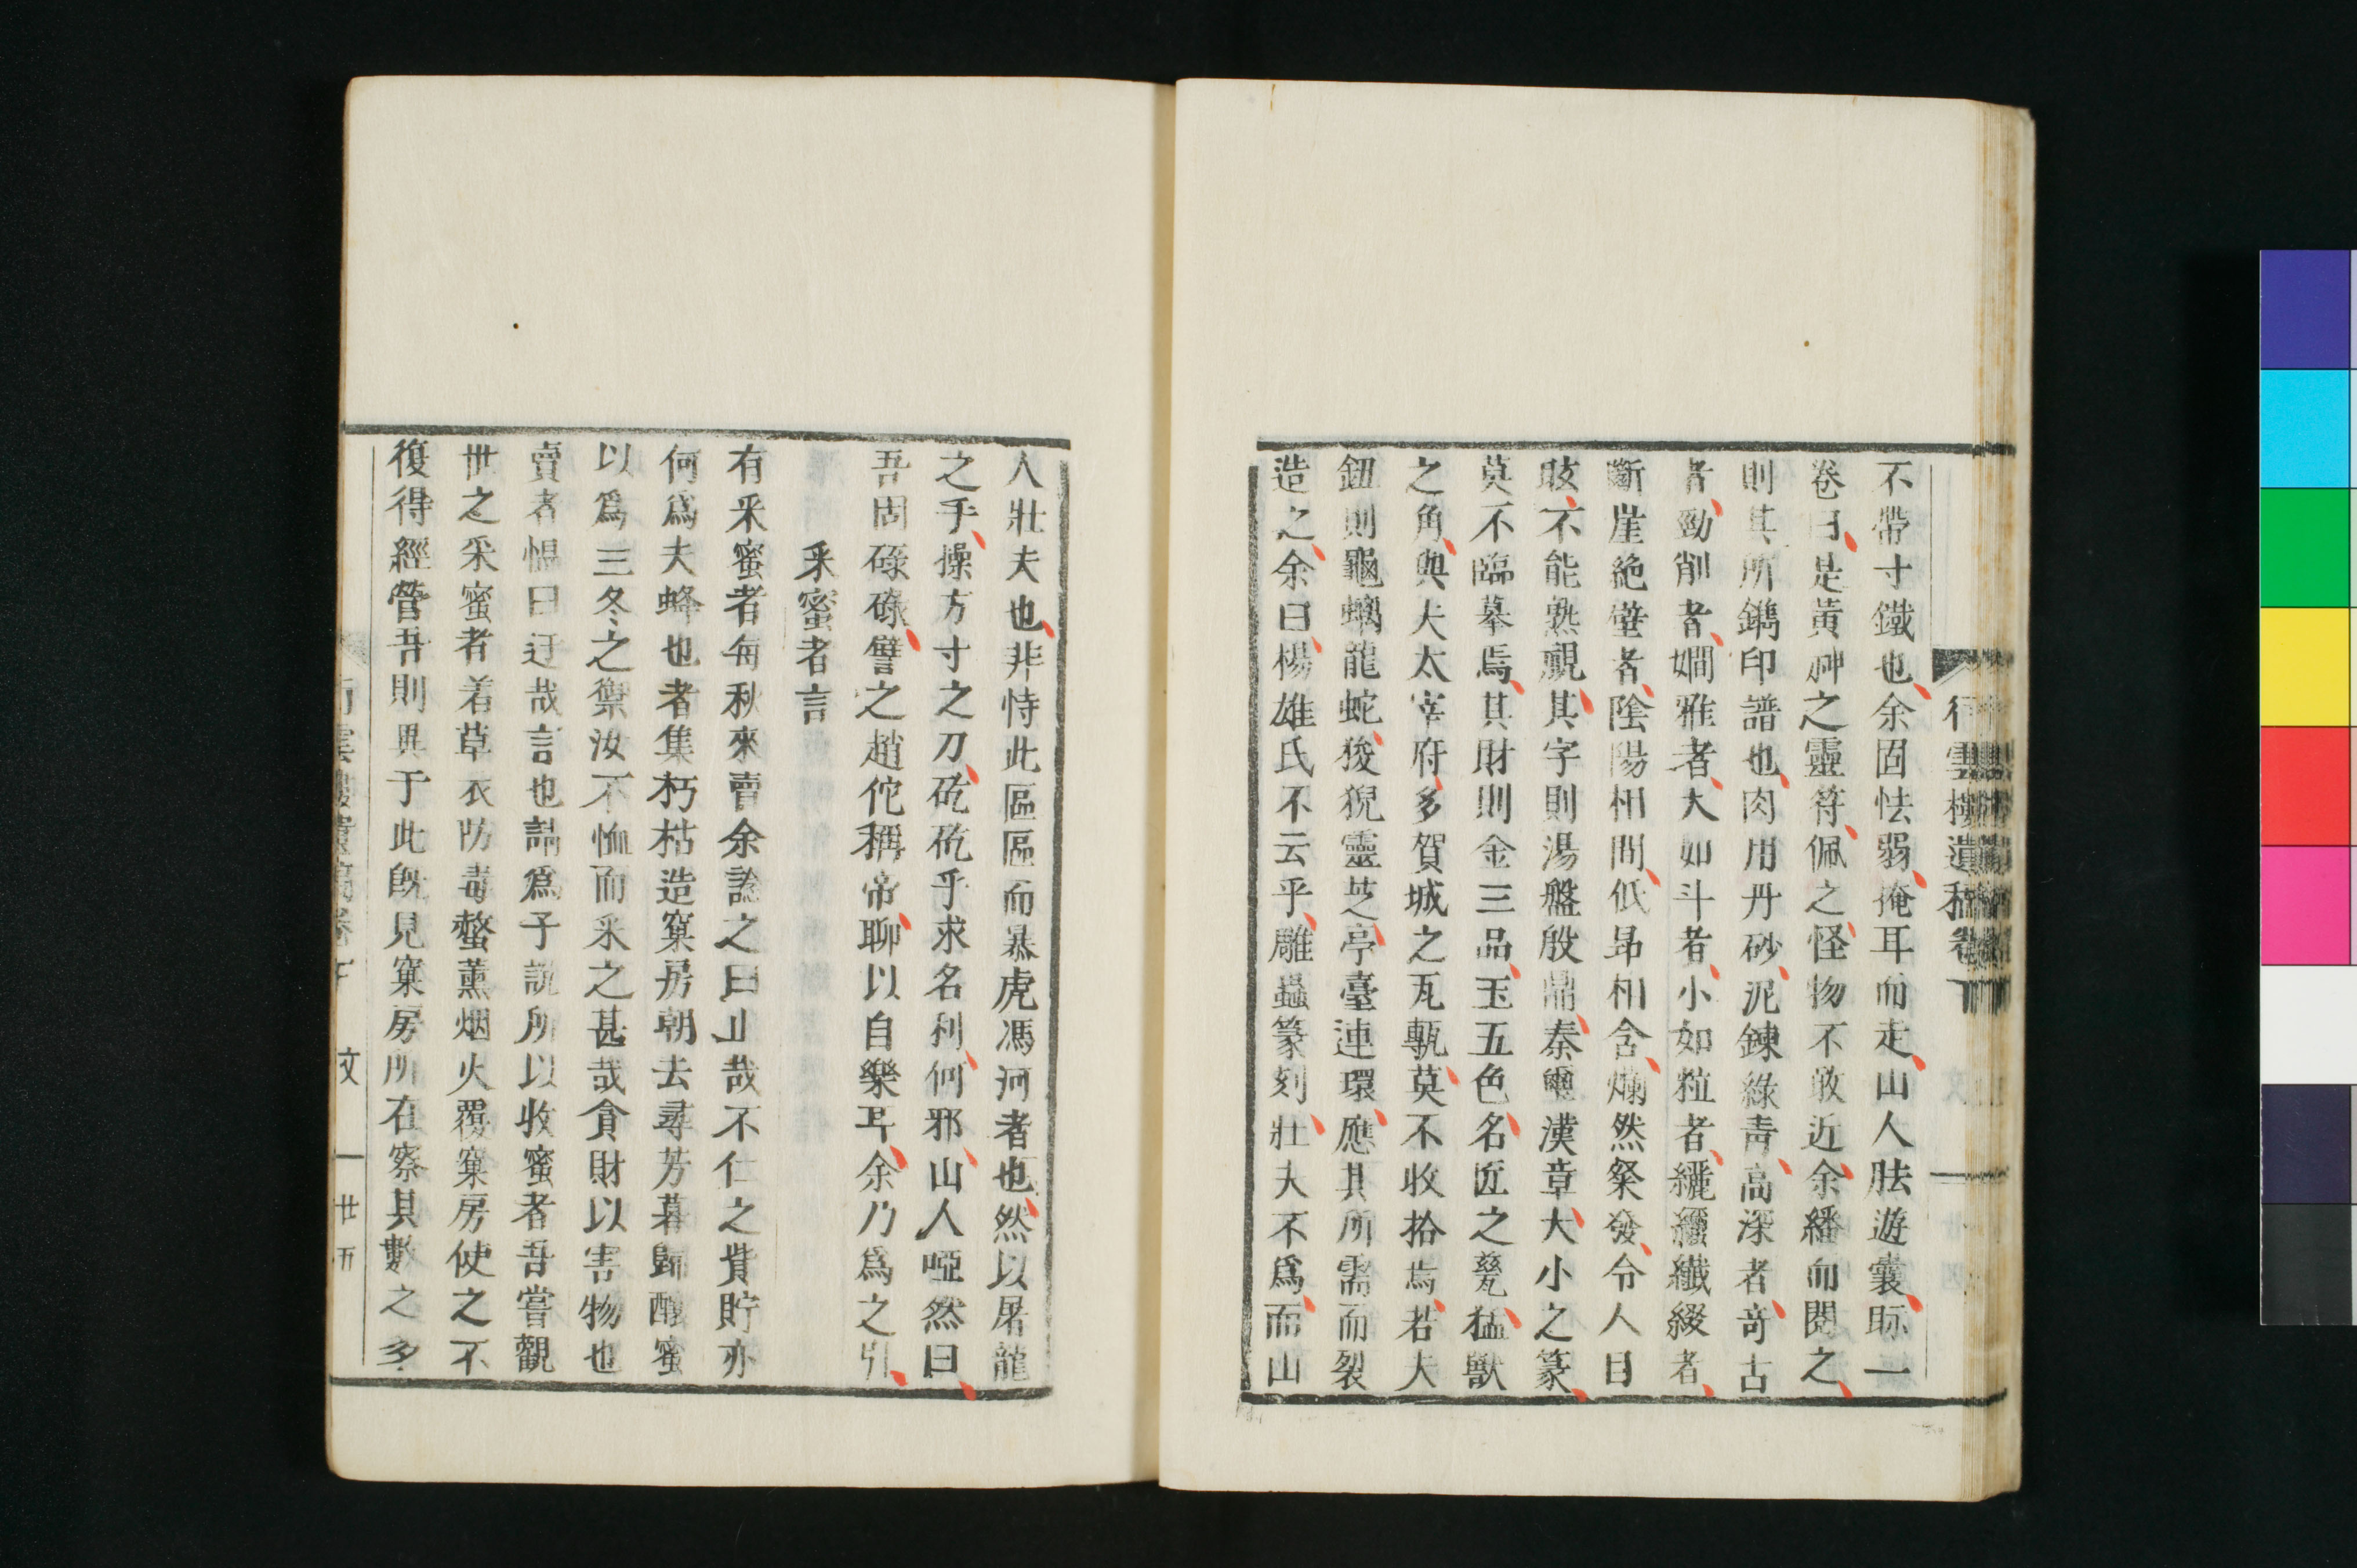 不帶寸鐵也余固怯弱掩耳而走山人胠遊囊眎一
卷曰是黃神之靈符佩之怪物不敢近余繙而閱之
則其所鐫印譜也肉用丹砂泥鍊綠靑高深者奇古
者勁削者嫺雅者大如斗者小如粒者纚纚纖綴者
斷崖絶壁者陰陽相間低昂相含爛然粲發令人目
眩不能熟覩其字則湯盤殷鼎秦璽漢章大小之篆
莫不臨摹焉其財則金三品玉五色名匠之甆猛獸
之角與夫太宰府多賀城之瓦甎莫不收拾焉若夫
鈕則龜螭龍蛇狻猊靈芝亭臺連環應其所需而裂
造之余曰楊雄氏不云乎雕蟲篆刻壯夫不爲而山
人壯夫也非恃此區區而暴虎馮河者也然以屠龍
之手操方寸之刀矻矻乎求名利何邪山人啞然曰
吾固碌碌譬之趙佗稱帝聊以自樂耳余乃爲之引
采蜜者言
有采蜜者每秋來賣余諗之曰止哉不仁之貲貯亦
何爲夫蜂也者集朽枯造窠房朝去尋芳暮歸醸蜜
以爲三冬之禦汝不恤而采之甚哉貪財以害物也
賣者惧曰迂哉言也請爲子説所以收蜜者吾嘗觀
世之采蜜者着草衣防毒螫薰烟火覆窠房使之不
復得經營吾則異于此旣見窠房所在察其數之多
文 一 廿五